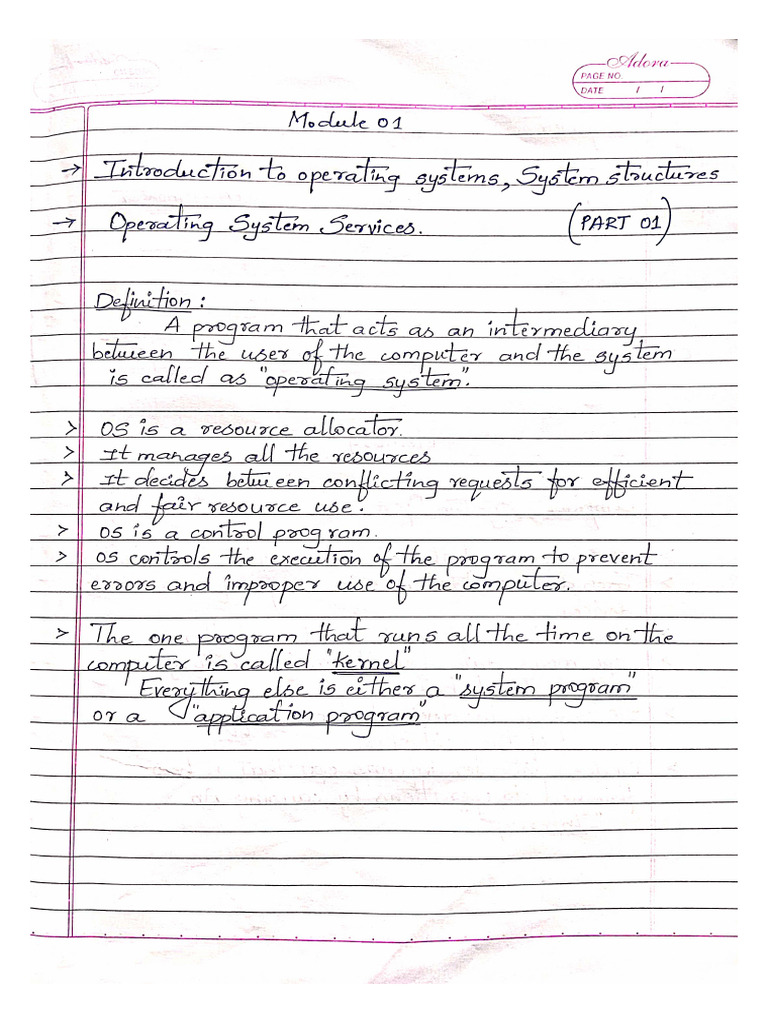 Adora
PAGE NO.
DATE / /
Module 01
→ Introduction to operating systems, System structures
→ Operating System Services. (PART 01)
Definition :
A program that acts as an intermediary
between the user of the computer and the system
is called as "operating system".
> OS is a resource allocator.
> It manages all the resources
> It decides between conflicting requests for efficient
and fair resource use.
> OS is a control program.
> OS controls the execution of the program to prevent
errors and improper use of the computer.
> The one program that runs all the time on the
computer is called "kernel"
Everything else is either a "system program"
or a "application program"